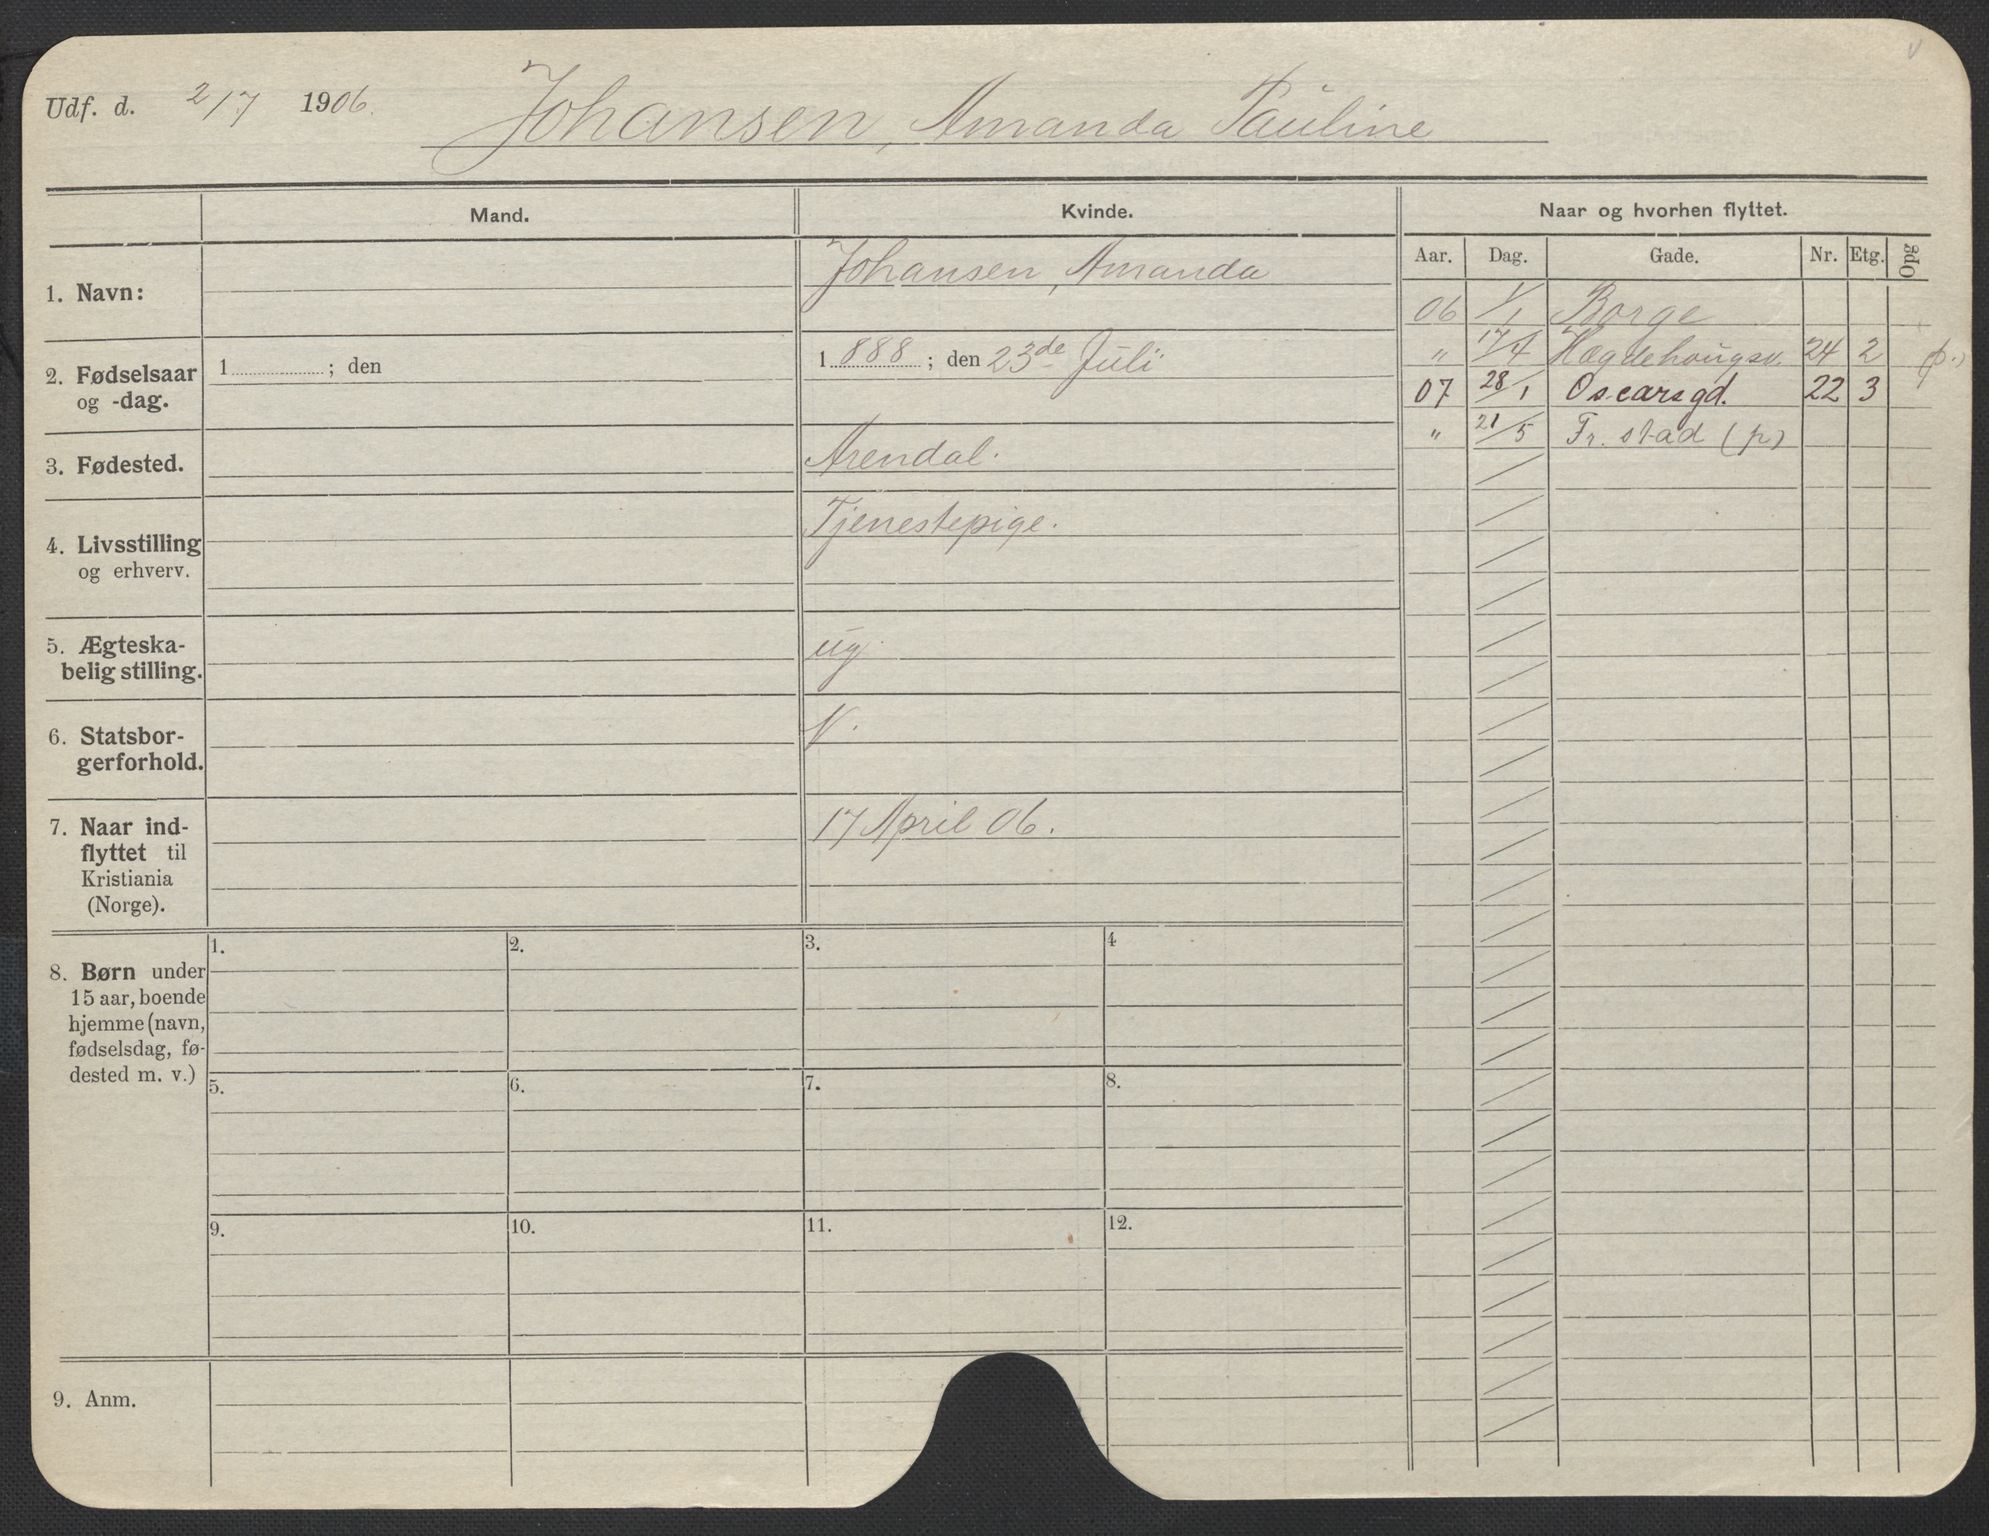 Udf. d. 2/7 1906. Johansen, Amanda Pauline
Mand. Kvinde. Naar og hvorhen flyttet.
Aar. Dag. Gade. Nr. Etg. Opg
1. Navn: Johansen, Amanda
2. Fødselsaar og -dag.
1 ; den
1888 ; den 23de Juli
3. Fødested. Arendal.
4. Livsstilling og erhverv. Tjenestepige.
5. Ægteska-
belig stilling. ug.
6. Statsbor-
gerforhold. N.
7. Naar ind-
flyttet til
Kristiania
(Norge).
17 April 06.
06 1/1 Borge
" 17/4 Hægdehougsv. 24 2 (p.)
07 28/1 Oscarsgd. 22 3
" 21/5 Fr. stad (p)
8. Børn under
15 aar, boende
hjemme (navn,
fødselsdag, fø-
dested m. v.)
1. 2. 3. 4
5. 6. 7. 8.
9. 10. 11. 12.
9. Anm.